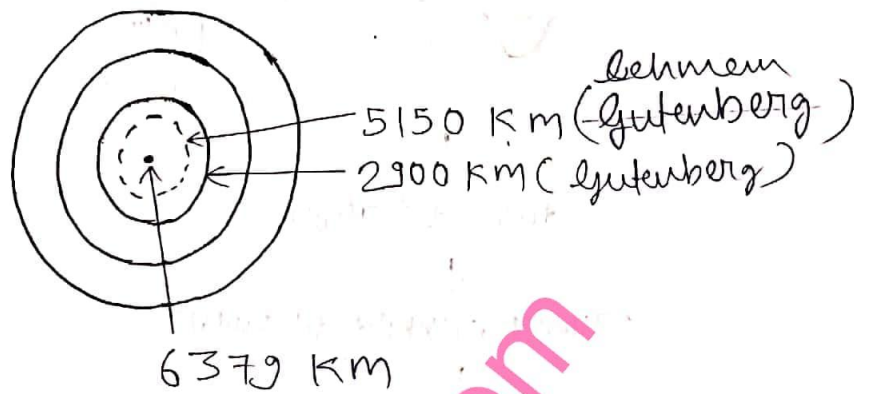 Lehmem
5150 Km (Gutenberg)
2900 KM (Gutenberg)
6379 KM
om